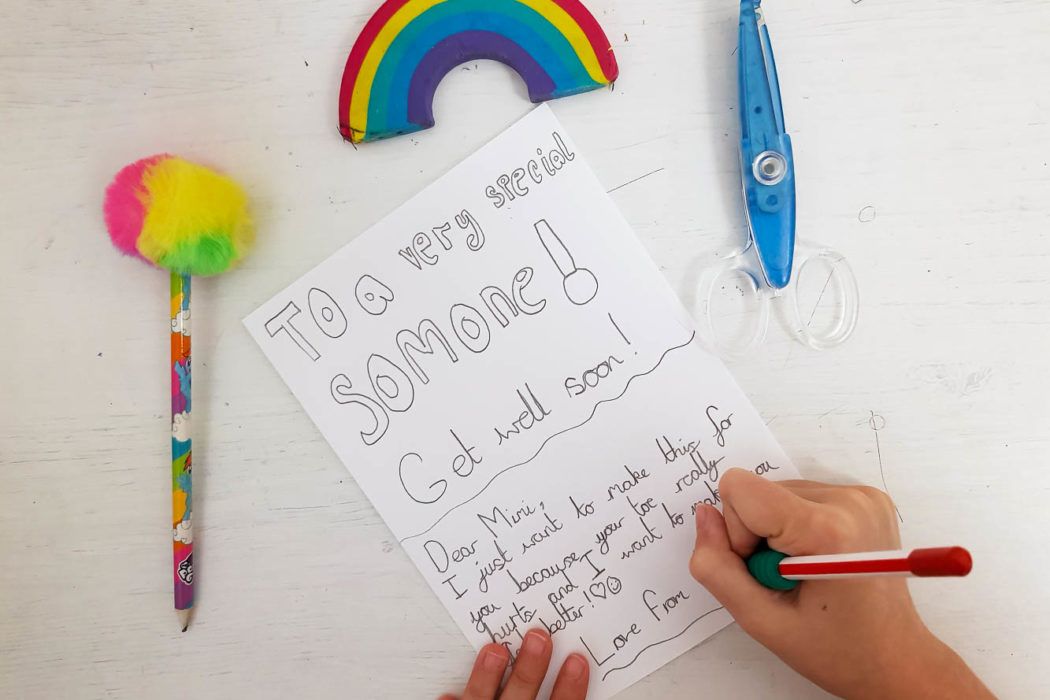 To a very special
SOMONE!
Get well soon!
Dear Mimi,
I just want to make this for
you because your toe really
hurts and I want to make you
better!
Love from